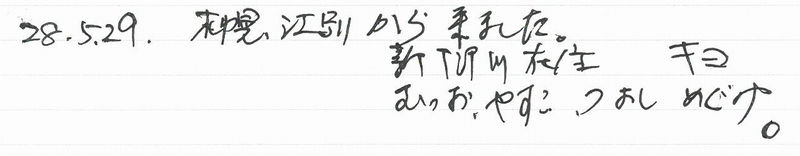 28.5.29. 札幌、江別から来ました。
新十津川在住 キヨ
むつお、やすこ、つよし めぐみ。